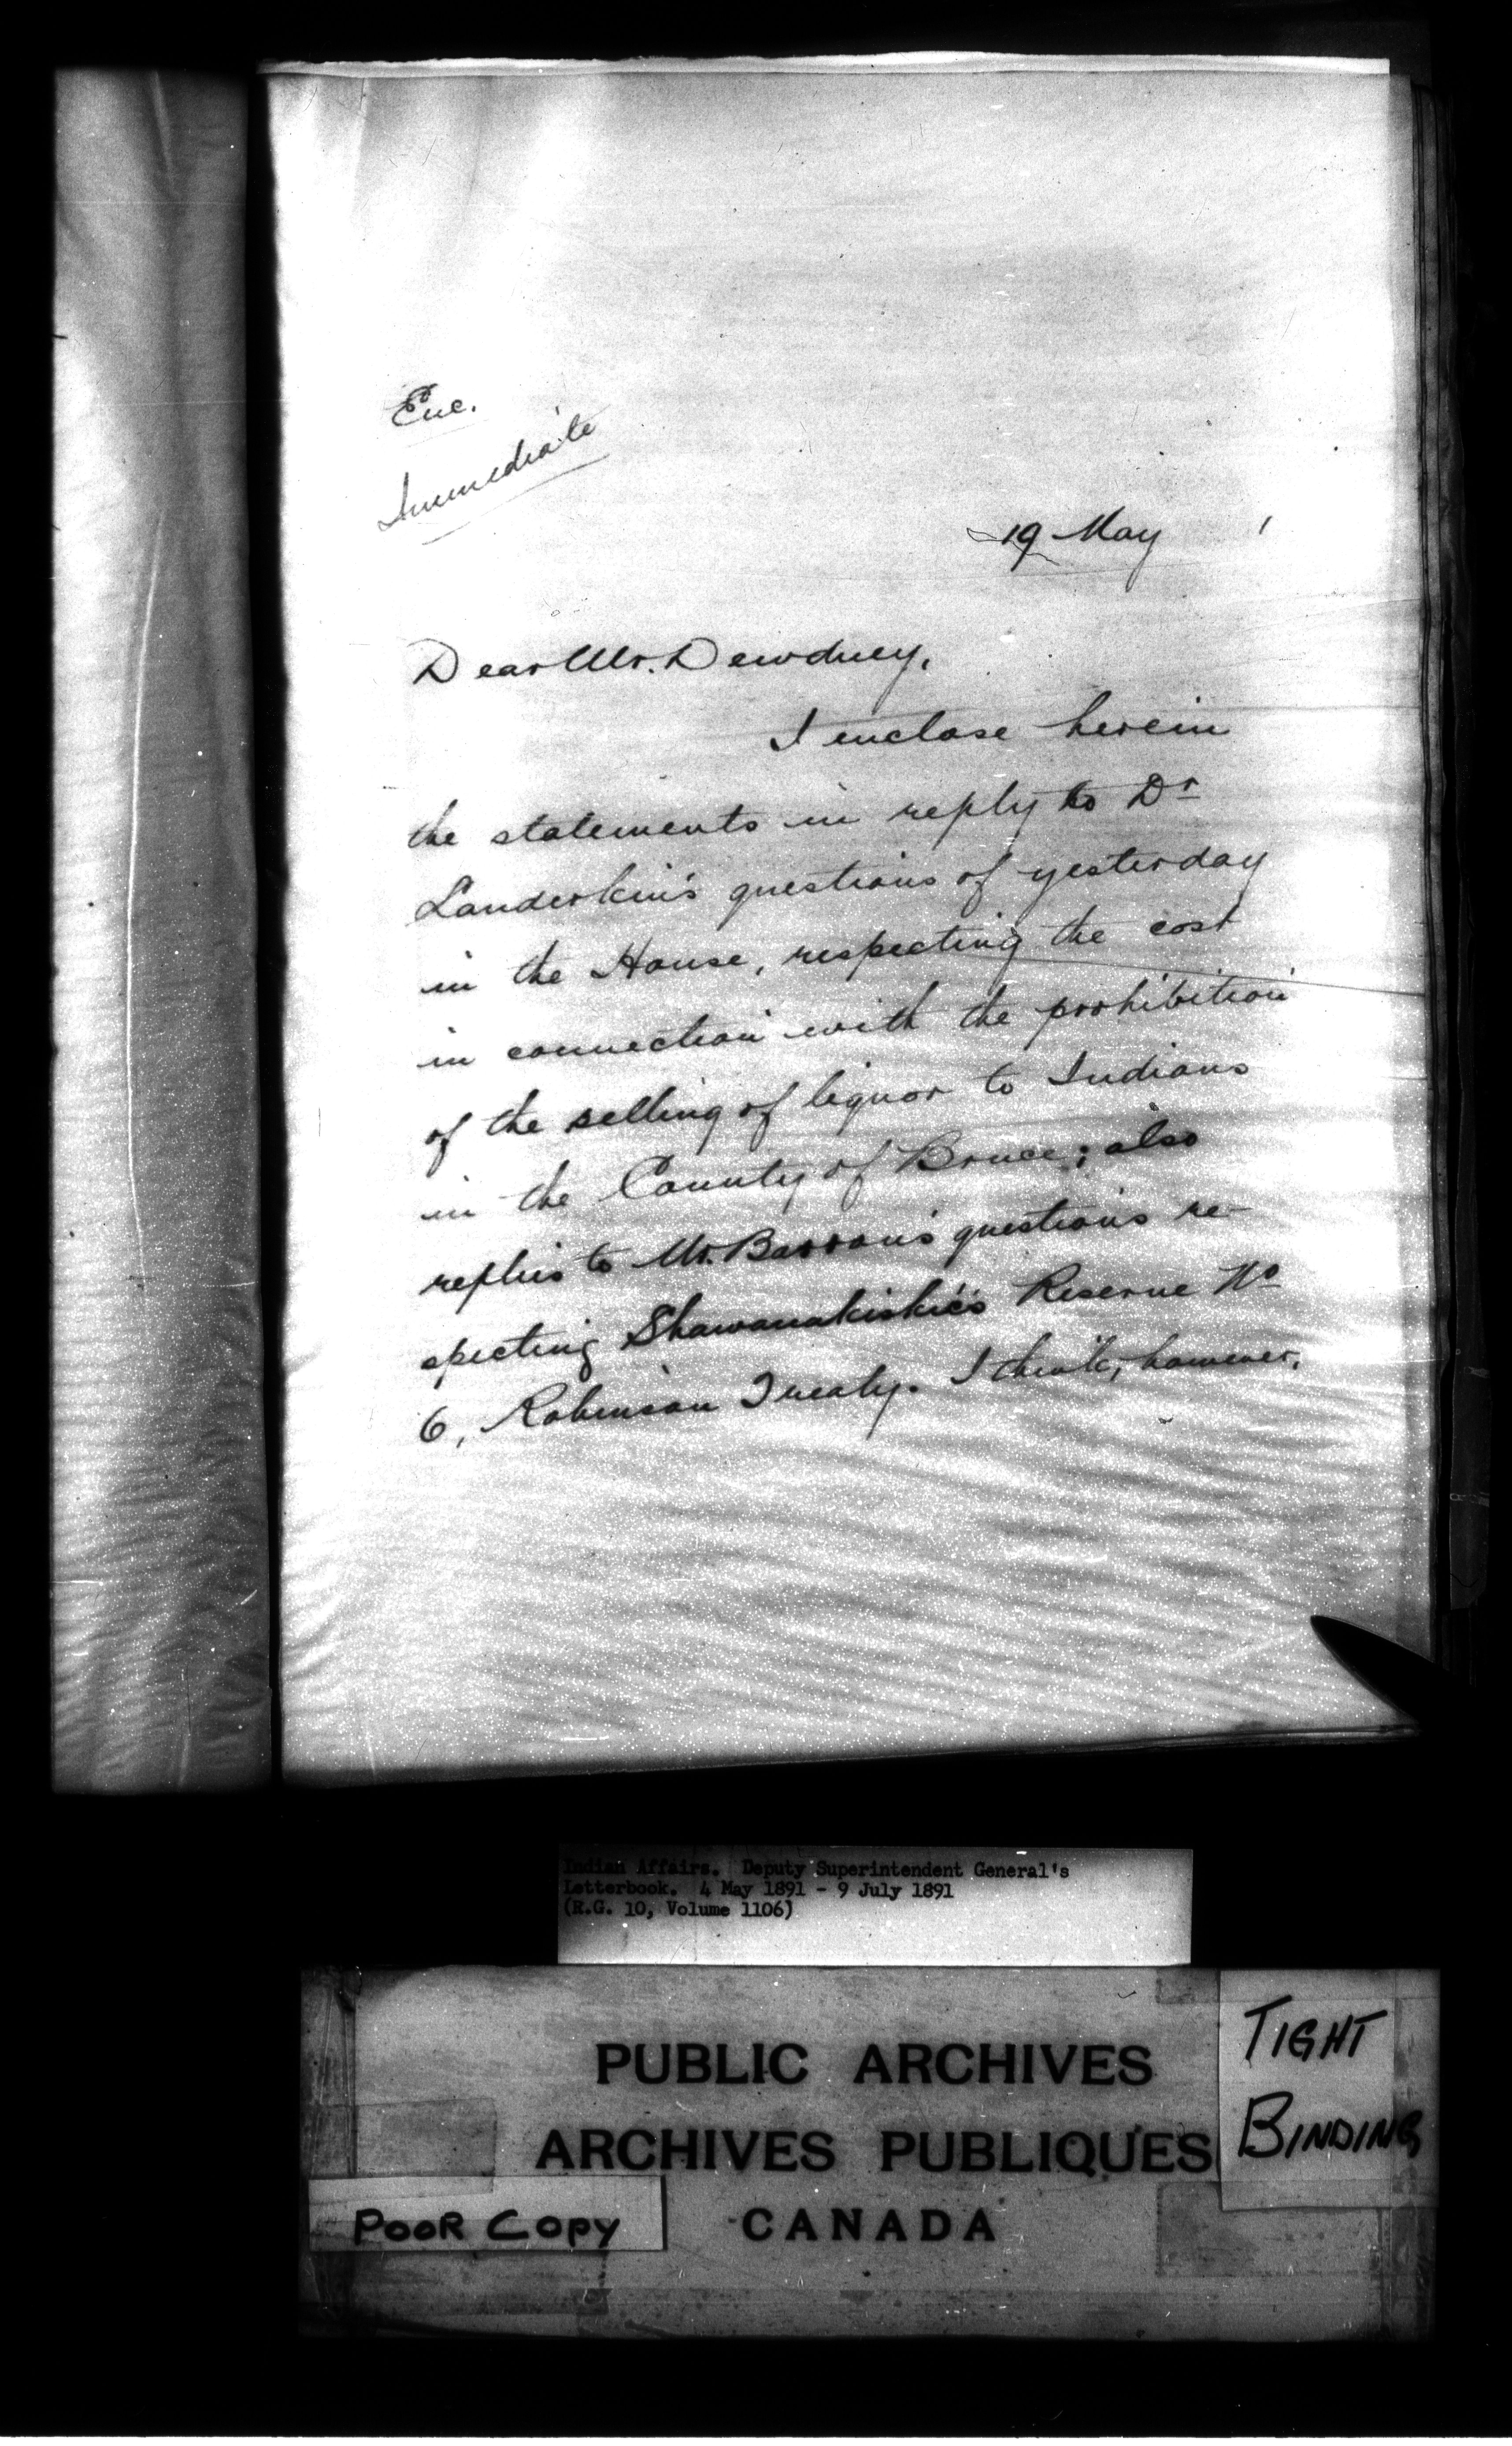 Enc.
Immediate
19 May 1
Dear Mr. Dewdney,
I enclose herein
the statements in reply to Dr
Landerkin's questions of yesterday
in the House, respecting the cost
in connection with the prohibition
of the selling of liquor to Indians
in the County of Bruce; also
replies to Mr. Barron's questions re-
specting Shawanakiskie's Reserve No
6, Robinson Treaty. I think, however,
Indian Affairs. Deputy Superintendent General's
Letterbook. 4 May 1891 - 9 July 1891
(R.G. 10, Volume 1106)
PUBLIC ARCHIVES
ARCHIVES PUBLIQUES
CANADA
TIGHT
BINDING
POOR COPY